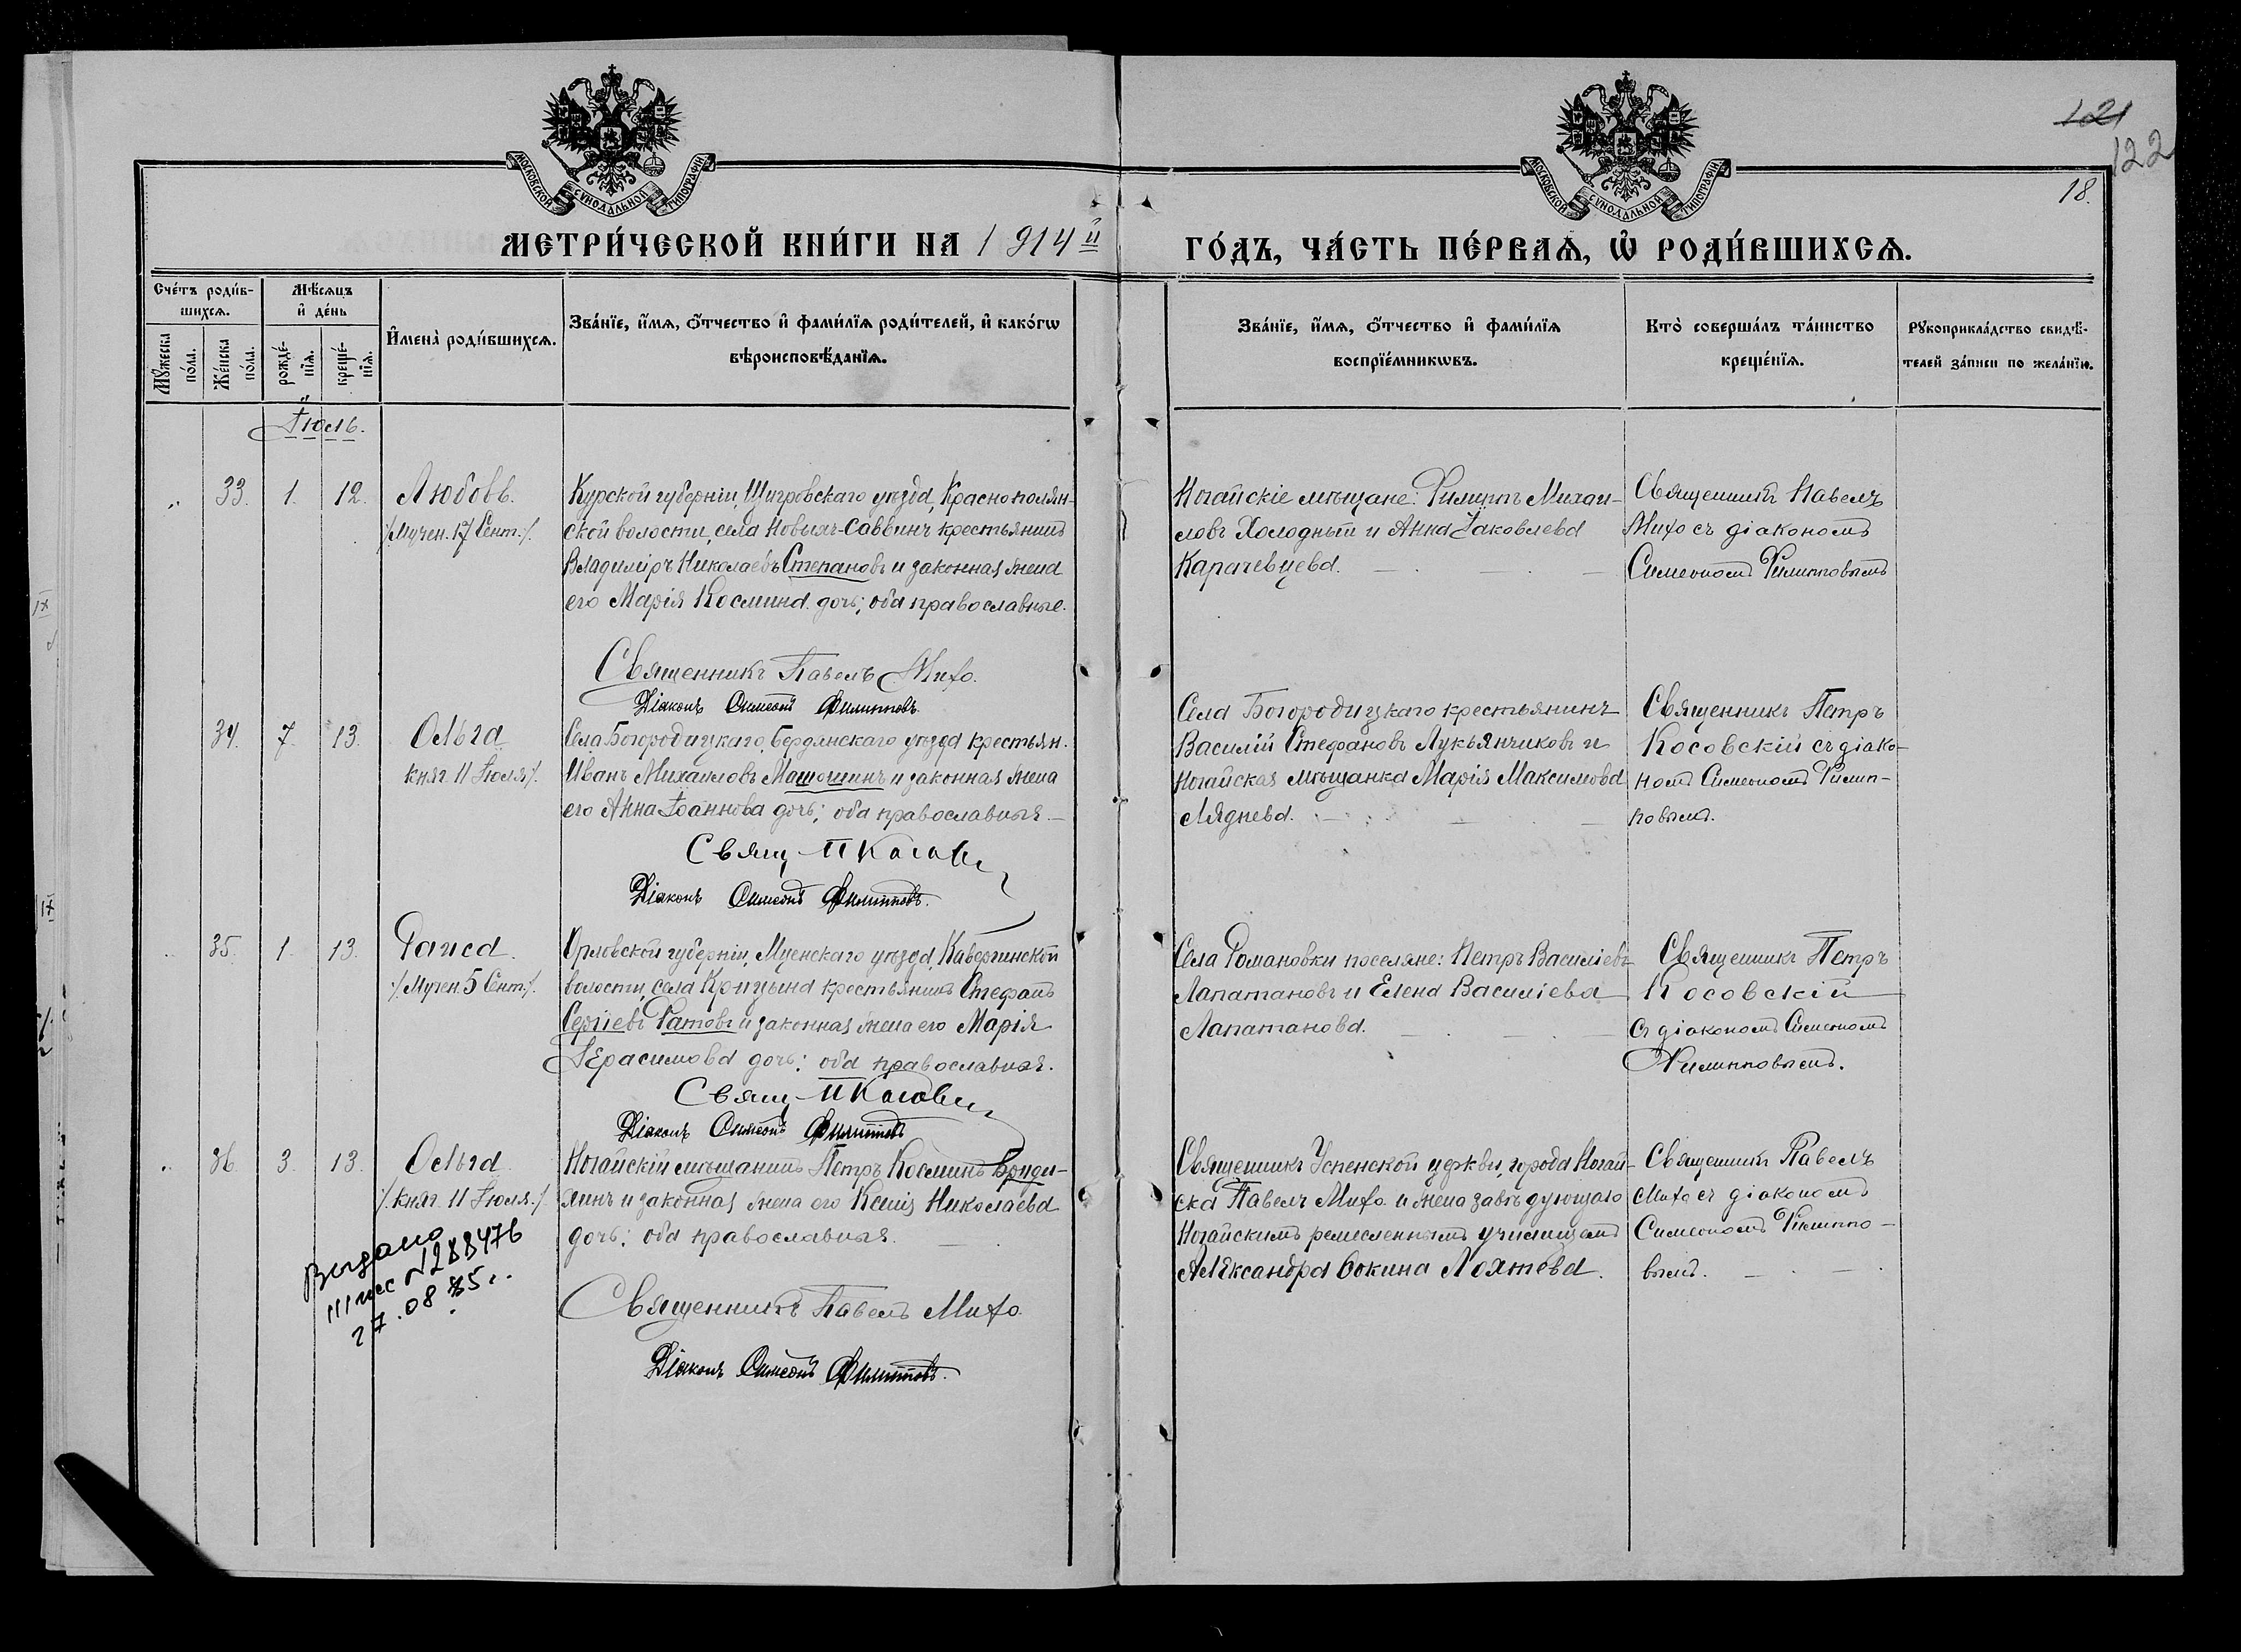 121
122
18.
МОСКОВСКОЙ СѴНОДАЛЬНОЙ ТИПОГРАФІИ
МОСКОВСКОЙ СѴНОДАЛЬНОЙ ТИПОГРАФІИ
МЕТРИ́ЧЕСКОЙ КНИ́ГИ НА 1914й ГО́ДЪ, ЧА́СТЬ ПЕ́РВАѦ, Ѡ҆ РОДИ́ВШИХСѦ.
Сче́тъ роди́в-
шихсѧ.
Мꙋ́жеска по́ла.
Же́нска по́ла.
Мѣ́сѧцъ
и҆ де́нь
рожде́-
нїѧ.
креще́-
нїѧ.
И҆мена̀ роди́вшихсѧ.
Зва́нїе, и҆́мѧ, ѻ҆́тчество и҆ фами́лїѧ роди́телей, и҆ како́гѡ
вѣроисповѣ́данїѧ.
Зва́нїе, и҆́мѧ, ѻ҆́тчество и҆ фами́лїѧ
воспрїе́мникѡвъ.
Кто̀ соверша́лъ та́инство
креще́нїѧ.
Рꙋкоприкла́дство свидѣ́-
телей за́писи по жела́нїю.
Іюль.
33. 1. 12. Любовь.
/Мучен. 17 Сент./.
Курской губерніи, Щигровскаго уѣзда, Краснополян-
ской волости, села Новыхъ-Саввинъ крестьянинъ
Владиміръ Николаевъ Степановъ и законная жена
его Марія Космина дочь; оба православные.
Священникъ Павелъ Михо.
Діаконъ Симеонъ Филипповъ.
Ногайскіе мѣщане: Филиппъ Михаи-
ловъ Холодный и Анна Іаковлева
Карачевцева.
Священникъ Павелъ
Михо съ діакономъ
Симеономъ Филипповымъ
34. 7. 13. Ольга
княг. 11 Іюля/.
Села Богородицкаго, Бердянскаго уѣзда крестьян.
Иванъ Михаиловъ Матошинъ и законная жена
его Анна Іоаннова дочь; оба православныя.
Свящ. П Косовск
Діаконъ Симеонъ Филипповъ.
Села Богородицкаго крестьянинъ
Василій Стефановъ Лукьянчиковъ и
Ногайская мѣщанка Марія Максимова
Ляднева.
Священникъ Петръ
Косовскій съ діако-
номъ Симеономъ Филип-
повымъ.
35. 1. 13. Раиса.
/Мучен. 5 Сент./.
Орловской губерніи, Мценскаго уѣзда,
волости, села Крицына крестьянинъ Стефанъ
Сергіевъ Ратовъ и законная жена его Марія
Герасимова дочь; оба православныя.
Свящ. П Косовск
Діаконъ Симеонъ Филипповъ
Села Романовки поселяне: Петръ Василіевъ
Лапатановъ и Елена Василіева
Лапатанова.
Священникъ Петръ
Косовскій
съ діакономъ Симеономъ
Филипповымъ.
36. 3. 13. Ольга
/. княг. 11 Іюля./.
Ногайскій мѣщанинъ Петръ Косминъ Бриди-
хинъ и законная жена его Ксенія Николаева
дочь; оба православныя.
Священникъ Павелъ Михо.
Діаконъ Симеонъ Филипповъ.
Священникъ Успенской церкви, города Ногай-
ска Павелъ Михо и жена завѣдующаго
Ногайскимъ ремесленнымъ училищемъ
Александра Фокина Лохтева.
Священникъ Павелъ
Михо съ діакономъ
Симеономъ Филиппо-
вымъ.
Выдано
N288476
27.08.85г.